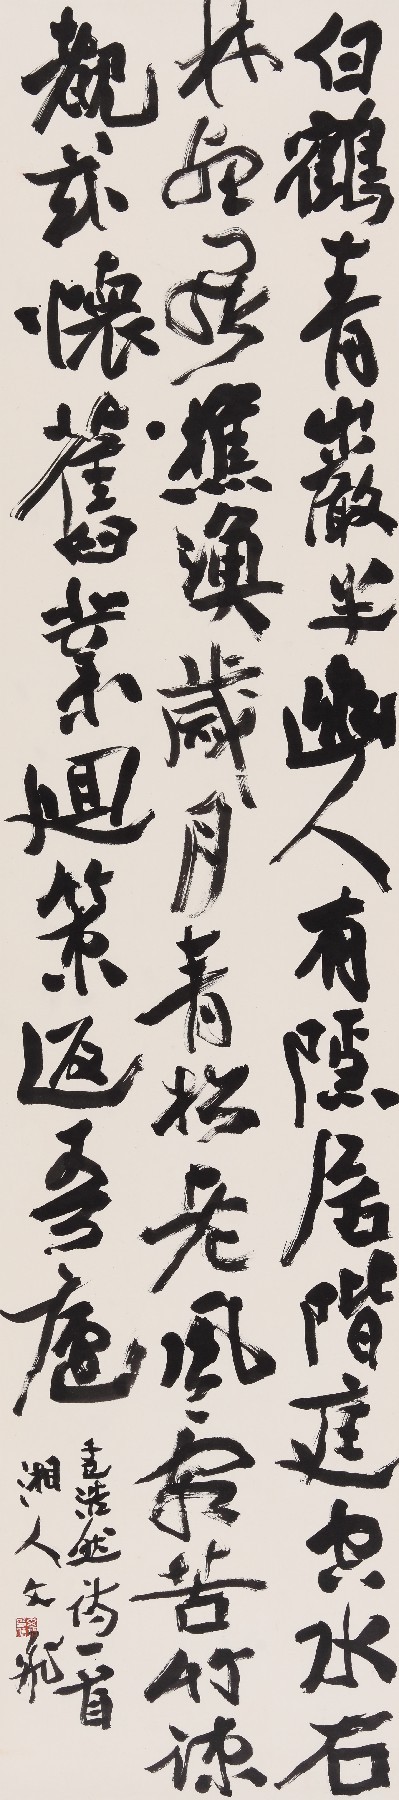 白鶴青巖半幽人有隱居階庭空水石
林壑罷樵漁歲月青松老風霜苦竹疎
覩茲懷舊業迴策返吾廬
孟浩然詩一首
湘人文飛